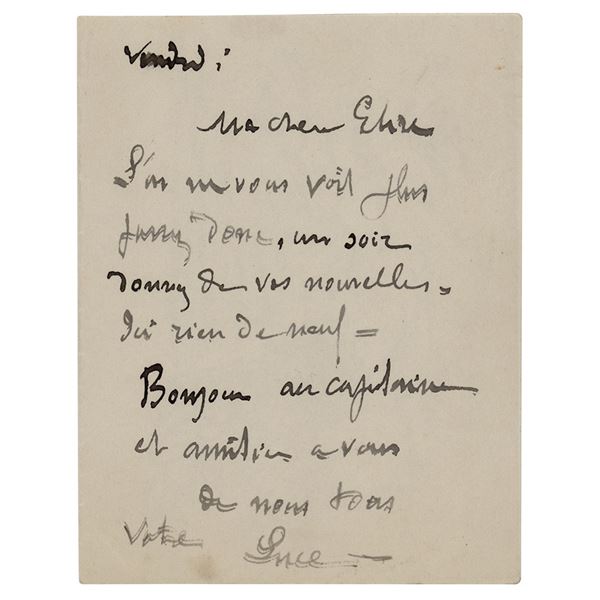 Vendredi
Ma chere Elise
L'on ne vous voit plus
donc, un soir
donnez de vos nouvelles.
Ici rien de neuf =
Bonjour au capitaine
et amitiés a vous
de nous tous
Votre Luce